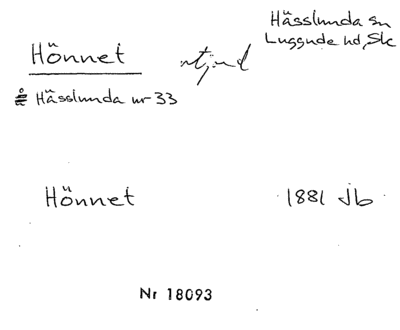 Hässlunda sn
Luggude hd, Sk
Hönnet utjord
å Hässlunda nr 33
Hönnet 1881 Jb
Nr 18093